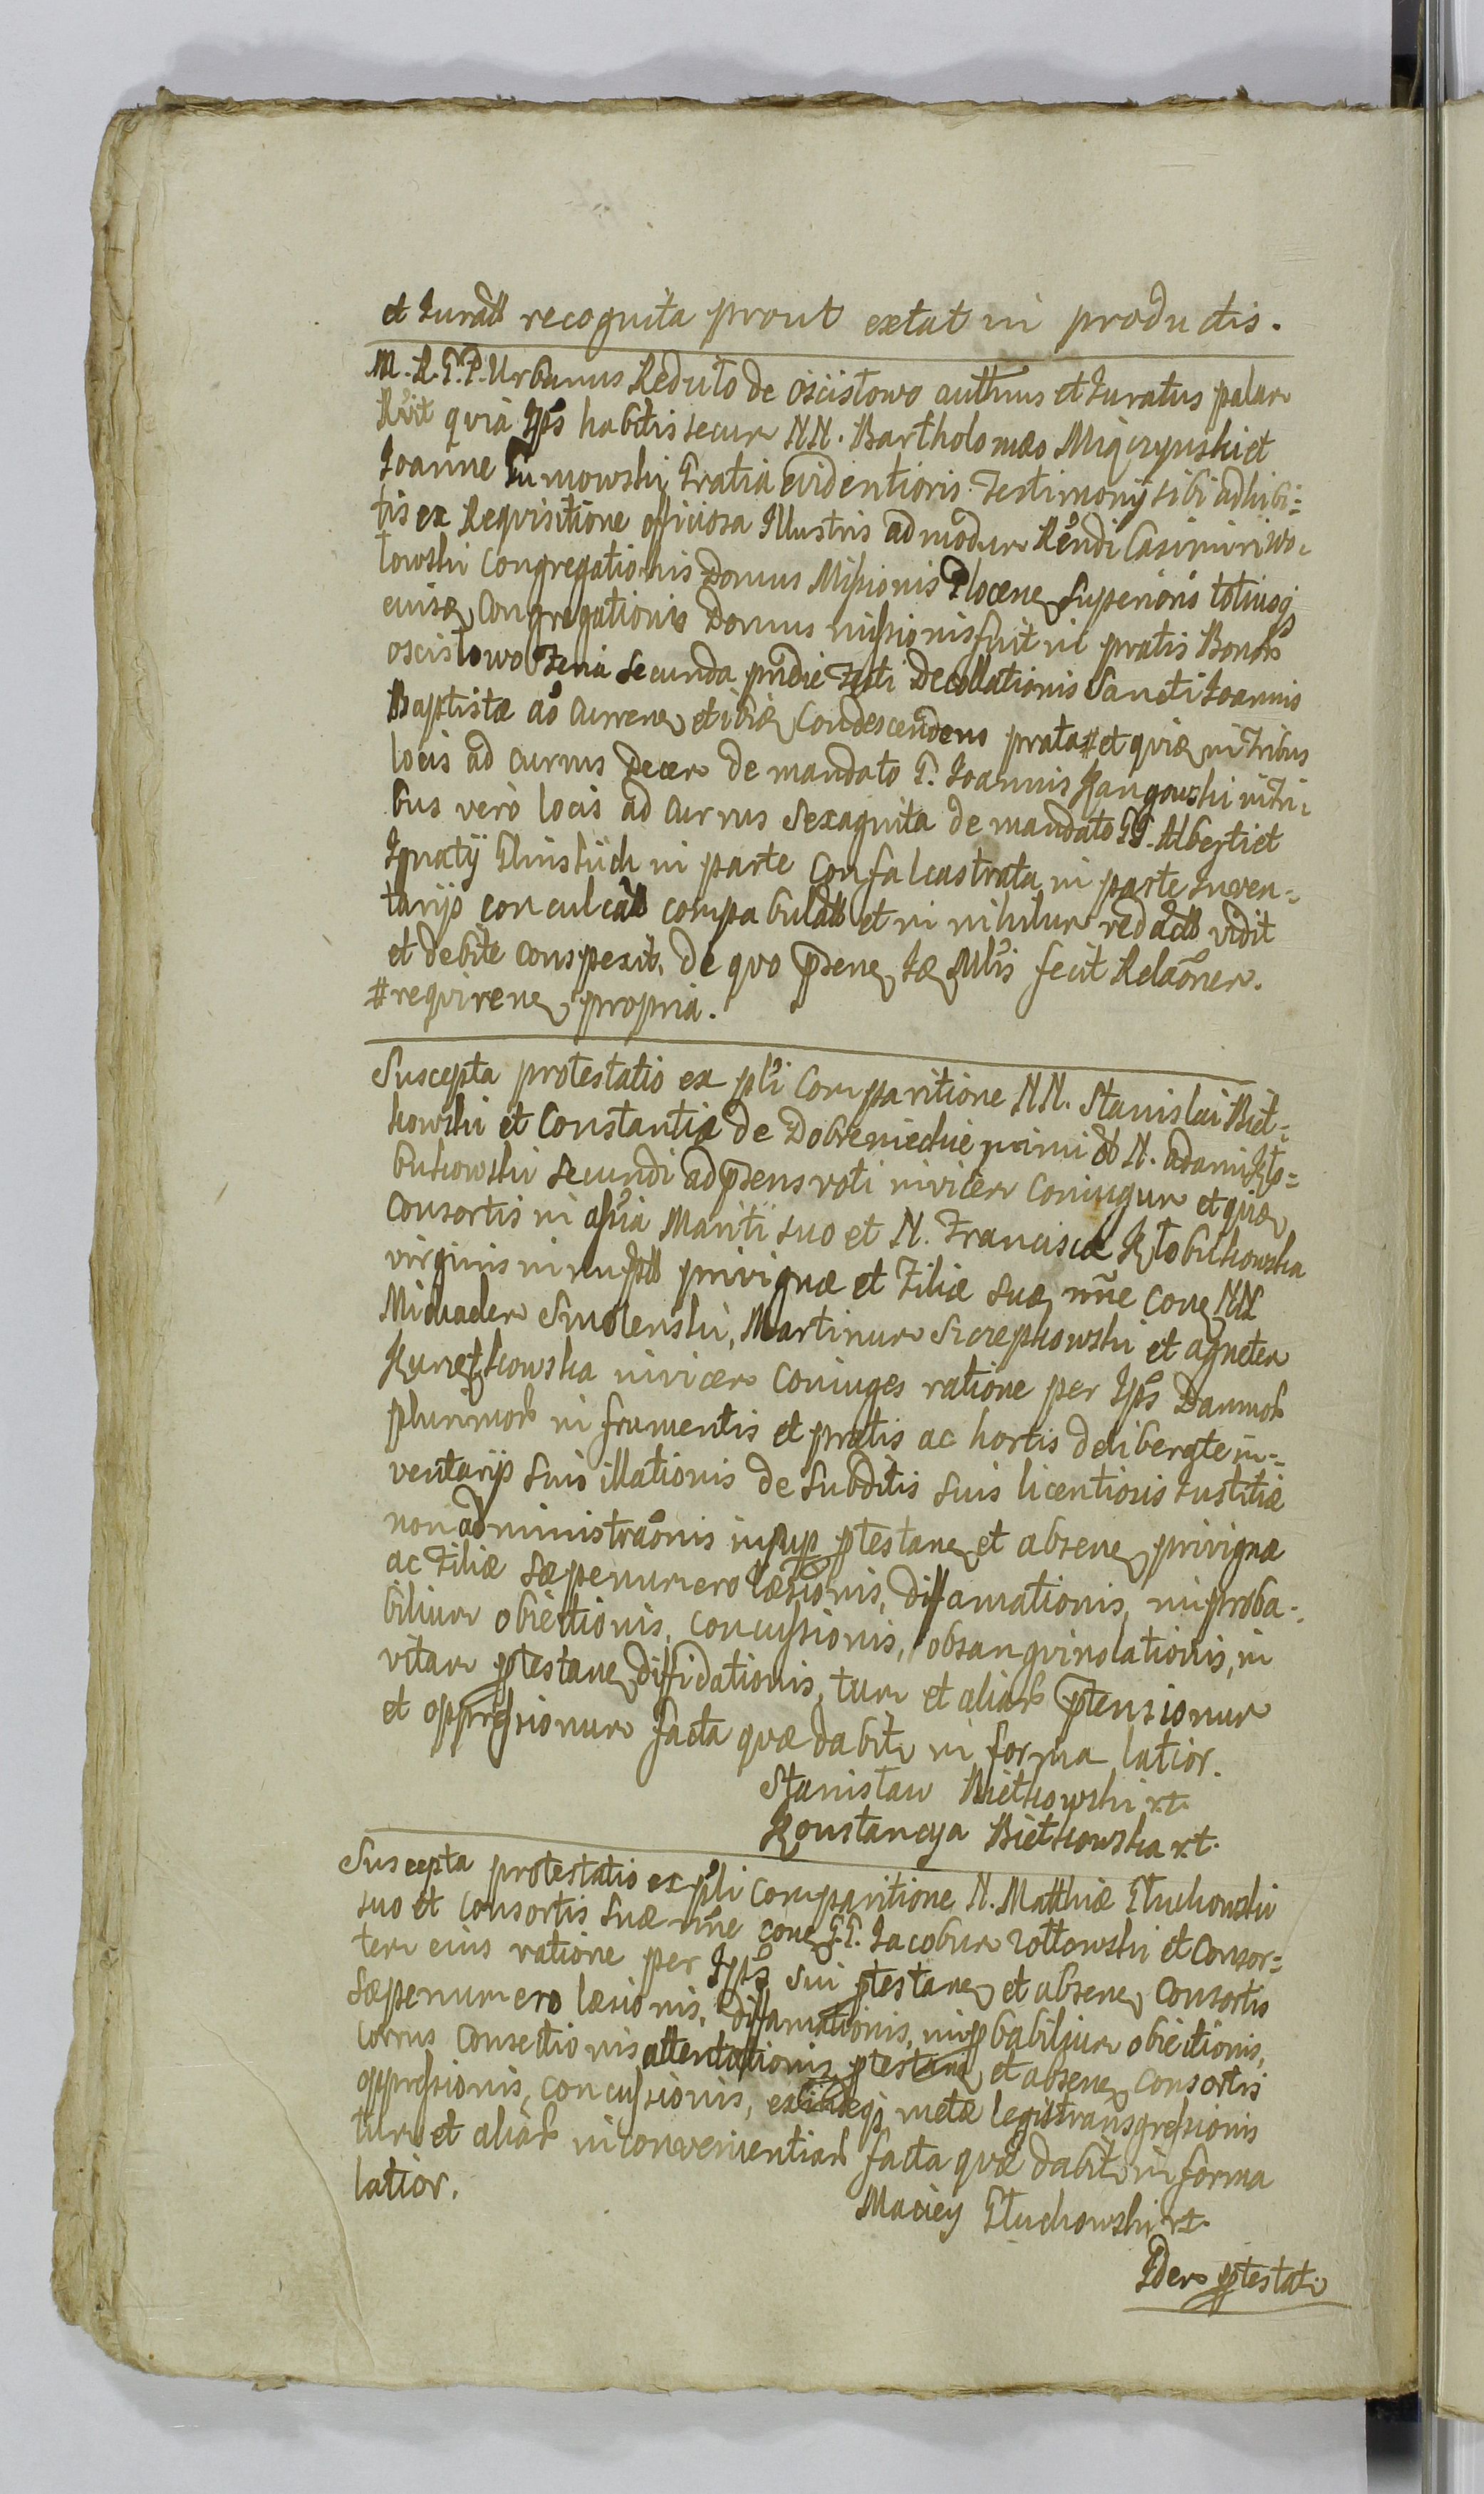 et Jurato recognita prout extat in productis.
M. R. G. P. Urbanus Reduto de Oscisłowo authmus et Juratus palam
Rvit quia Ips habitis secum NN. Bartholomæo Miączynski et
Joanne Tumowski Gratia evidentioris Testimonij sibi adhibi=
tis ex Requisitione officiosa Illustris admodum Rendi Casimiri Wo=
towski Congregationis Domus Missionis Plocen Superioris totiusq
eiusq Congregationis Domus missionis fuit in pratis Bonor
Oscisłowo Feria Secunda pridie Festi Decollationis Sancti Joannis
Baptistæ ao curren et ibiq Condescendens prata # et quia in tribus
locis ad currus decem de mandato G. Joannis Kangowski in tri=
bus verò locis ad currus Sexaginta de mandato GG. Alberti et
Ignatij Glinskich in parte Confalcastrata in parte Inven=
tarijs conculcata compabulata et in nihilum redacta vidit
et debite conspexit, de quo psens Jæ Mlis fecit Relaonem.
# requiren propria.
Suscepta protestatio ex pli Comparitione NN. Stanislai Biet=
kowski et Constantiæ de Dobremechie primi et N. Adami Kło=
bukowski secundi ad psens voti invicem Coniugum et quia
Consortis in assia Mariti suo et N. Franciscæ Kłobukowska
virginis innupta privignæ et Filiæ suæ nne con NN
Michaelem Smolenski, Martinum Szczepkowski et Agnetem
Kunetkowska invicem Coniuges ratione per Ips Damnor
plurimor in frumentis et pratis ac hortis deliberate in=
ventarijs suis illationis de subditis suis licentioris Justitiæ
non administraonis insup ptestan et absen privignæ
ac Filiæ sæpenumero læsionis, diffamationis, improba=
bilium obiectionis, concussionis, obsangvinolationis, in
vitam ptestan diffidationis, tum et aliar ptensionum
et oppressionum facta quæ dabitr in forma latior.
Stanisław Bietkowski rt.
Konstancya Bietkowska rt.
Suscepta protestatio ex pli Comparitione N. Matthiæ Głuchowski
suo et Consortis suæ nne con G.G. Jacobum Zottowski et Consor=
tem eius ratione per Ips sui ptestan et absen Consortis
sæpenumero læsionis, diffamationis, impbabilium obiectionis,
cornus Consectionis attentationis ptestan et absen Consortis
oppressionis, concussionis, exindeq metæ legis transgressionis
tum et aliar inconvenientiar facta quæ dabitr in forma
latior.
Maciey Głuchowski rt.
Idem ptestatr